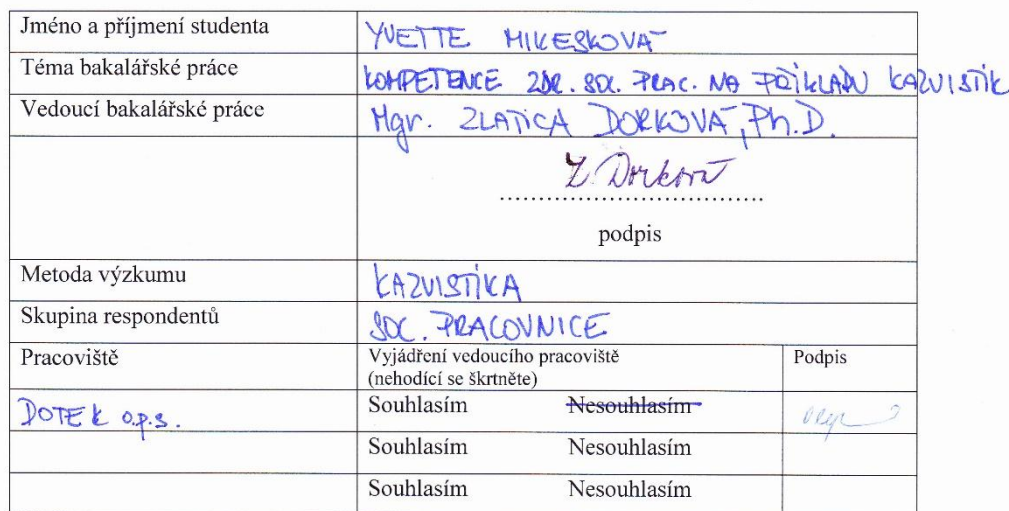 Jméno a příjmení studenta YVETTE MIKESKOVÁ
Téma bakalářské práce KOMPETENCE ZDR. SOC. PRAC. NA PŘÍKLADU KAZUISTIK
Vedoucí bakalářské práce Mgr. ZLATICA DORKOVÁ, Ph.D.
Z. Dorková
podpis
Metoda výzkumu KAZUISTIKA
Skupina respondentů SOC. PRACOVNICE
Pracoviště Vyjádření vedoucího pracoviště Podpis
(nehodící se škrtněte)
DOTEK o.p.s. Souhlasím Nesouhlasím
Souhlasím Nesouhlasím
Souhlasím Nesouhlasím